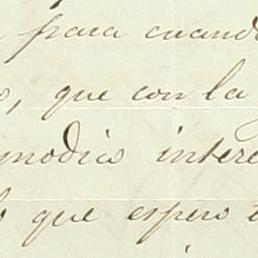 para cuando
, que con la
modico intere
que espero